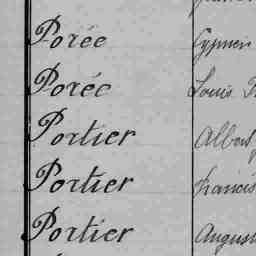 Porée
Porée Louis
Portier Albert
Portier Francis
Portier August